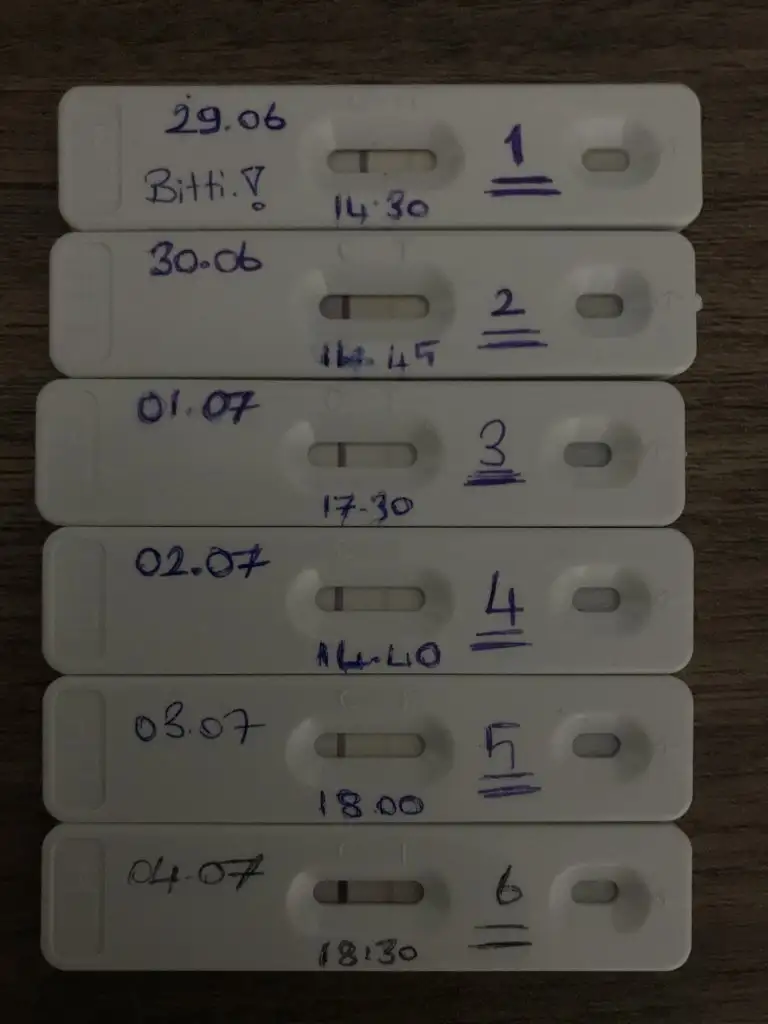 29.06
Bitti.!
14.30
1
30.06
14.45
2
01.07
17.30
3
02.07
14.40
4
03.07
18.00
5
04.07
18:30
6